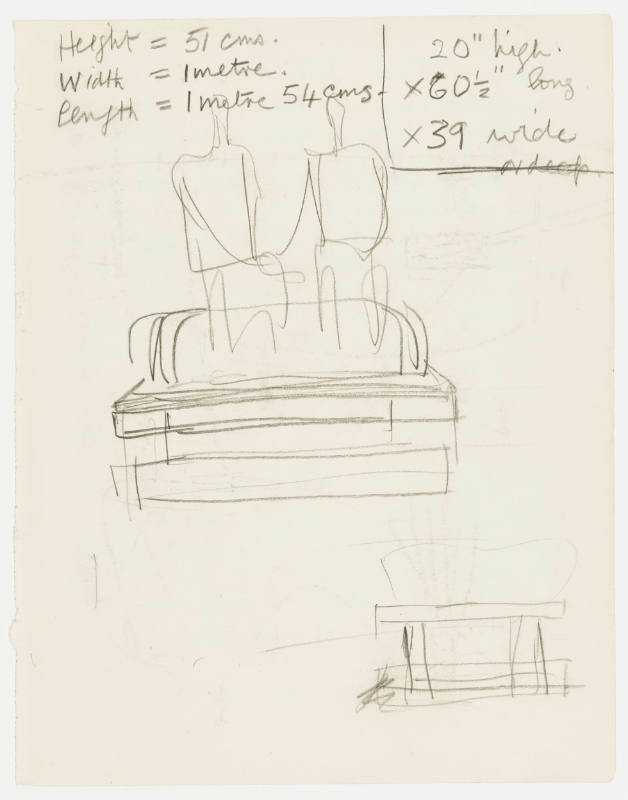 Height = 51 cms.
Width = 1 metre.
Length = 1 metre 54 cms.
20" high.
×60½" long.
×39 wide